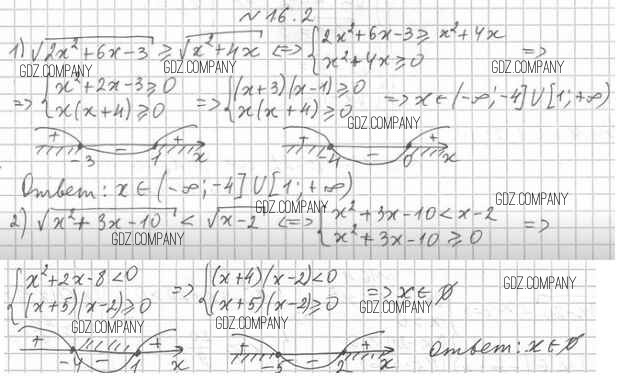 № 16.2
1) √(2x²+6x-3) ≥ √(x²+4x) <=> { 2x²+6x-3 ≥ x²+4x ; x²+4x ≥ 0 =>
GDZ.COMPANY GDZ.COMPANY GDZ.COMPANY
=> { x²+2x-3 ≥ 0 ; x(x+4) ≥ 0 => { (x+3)(x-1) ≥ 0 ; x(x+4) ≥ 0 => x ∈ (-∞; -4] ∪ [1; +∞)
GDZ.COMPANY
+ - + + - +
-3 1 x -4 0 x
Ответ: x ∈ (-∞; -4] ∪ [1; +∞)
GDZ.COMPANY GDZ.COMPANY
2) √(x²+3x-10) < √(x-2) <=> { x²+3x-10 < x-2 ; x²+3x-10 ≥ 0 =>
GDZ.COMPANY
{ x²+2x-8 < 0 ; (x+5)(x-2) ≥ 0 => { (x+4)(x-2) < 0 ; (x+5)(x-2) ≥ 0 => x ∈ ∅
GDZ.COMPANY
GDZ.COMPANY
GDZ.COMPANY GDZ.COMPANY
+ - + + - +
-4 1 x -5 2 x
Ответ: x ∈ ∅